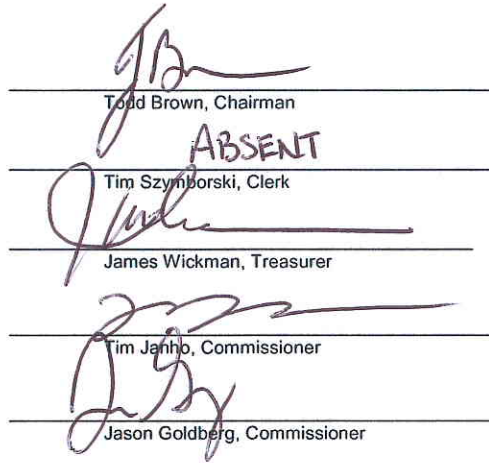 Todd Brown, Chairman
ABSENT
Tim Szymborski, Clerk
James Wickman, Treasurer
Tim Janho, Commissioner
Jason Goldberg, Commissioner